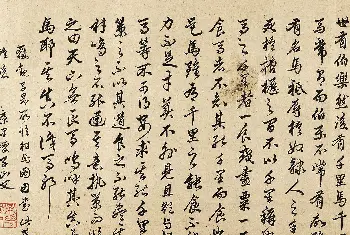 世有伯樂然後有千里馬千
馬常有而伯樂不常有故
有名馬祇辱於奴隸人之手
死於槽櫪之間不以千里稱
馬之千里者一食或盡粟一
食馬者不知其能千里而食
是馬雖有千里之能食不
力不足才美不外見且欲與
馬等不可得安求其能千里
策之不以其道食之不能盡
材鳴之不能通其意執策而臨
之曰天下無馬嗚呼其真無馬
馬耶其真不識馬耶